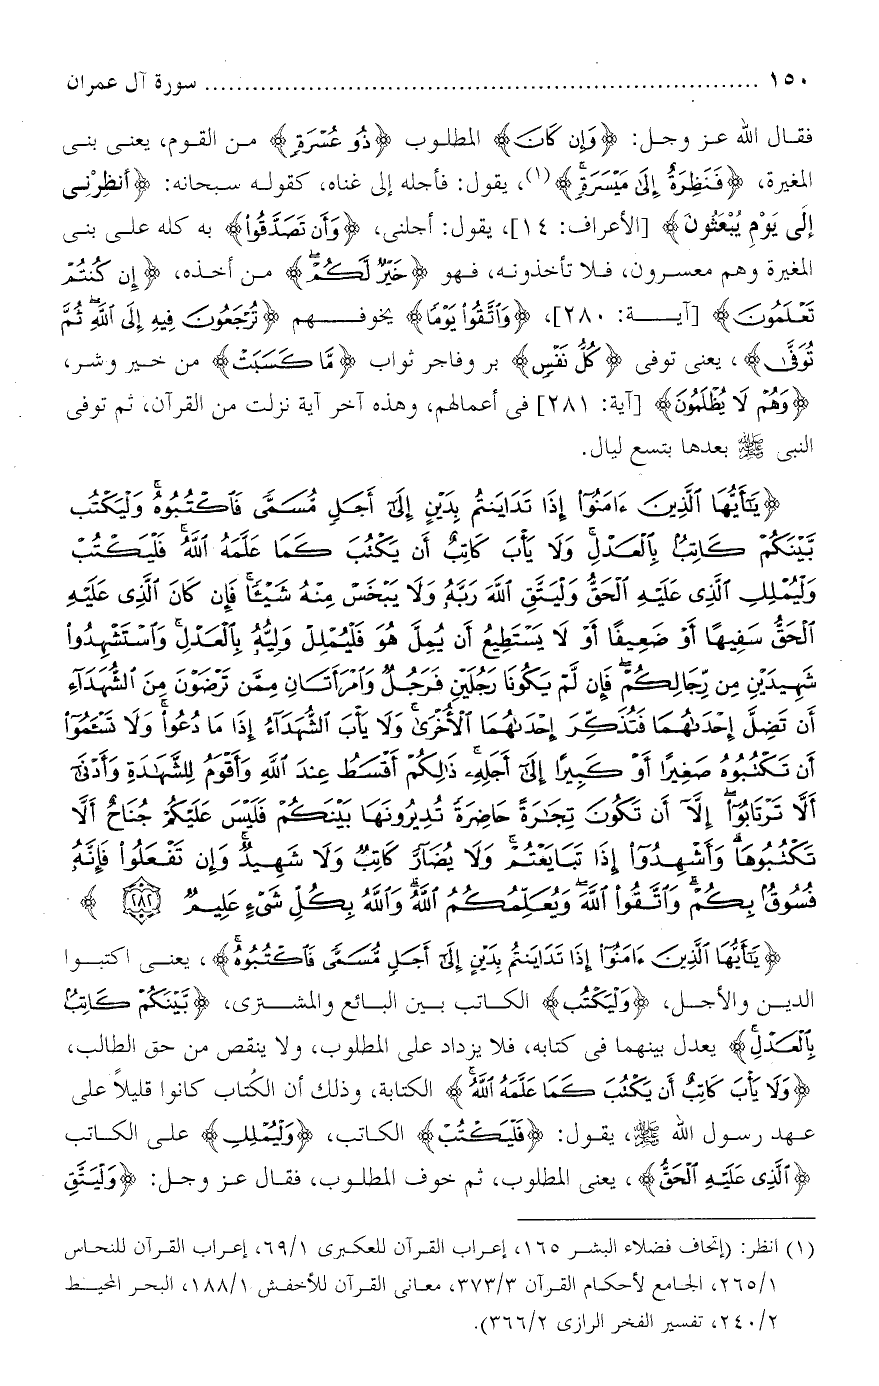 ١٥٠ ........................................................... سورة آل عمران
فقال الله عز وجل: ﴿وَإِن كَانَ﴾ المطلوب ﴿ذُو عُسْرَةٍ﴾ من القوم، يعنى بنى
المغيرة، ﴿فَنَظِرَةٌ إِلَىٰ مَيْسَرَةٍ﴾(١)، يقول: فأجله إلى غناه، كقوله سبحانه: ﴿أَنظِرْنِى
إِلَى يَوْمِ يُبْعَثُونَ﴾ [الأعراف: ١٤]، يقول: أجلنى، ﴿وَأَن تَصَدَّقُوا۟﴾ به كله على بنى
المغيرة وهم معسرون، فلا تأخذونه، فهو ﴿خَيْرٌ لَّكُمْ﴾ من أخذه، ﴿إِن كُنتُمْ
تَعْلَمُونَ﴾ [آية: ٢٨٠]، ﴿وَٱتَّقُوا۟ يَوْمًا﴾ يخوفهم ﴿تُرْجَعُونَ فِيهِ إِلَى ٱللَّهِ ثُمَّ
تُوَفَّىٰ﴾، يعنى توفى ﴿كُلُّ نَفْسٍ﴾ بر وفاجر ثواب ﴿مَّا كَسَبَتْ﴾ من خير وشر،
﴿وَهُمْ لَا يُظْلَمُونَ﴾ [آية: ٢٨١] فى أعمالهم، وهذه آخر آية نزلت من القرآن، ثم توفى
النبى ﷺ بعدها بتسع ليال.
﴿يَٰٓأَيُّهَا ٱلَّذِينَ ءَامَنُوٓا۟ إِذَا تَدَايَنتُم بِدَيْنٍ إِلَىٰٓ أَجَلٍ مُّسَمًّى فَٱكْتُبُوهُ ۚ وَلْيَكْتُب
بَّيْنَكُمْ كَاتِبٌۢ بِٱلْعَدْلِ ۚ وَلَا يَأْبَ كَاتِبٌ أَن يَكْتُبَ كَمَا عَلَّمَهُ ٱللَّهُ ۚ فَلْيَكْتُبْ
وَلْيُمْلِلِ ٱلَّذِى عَلَيْهِ ٱلْحَقُّ وَلْيَتَّقِ ٱللَّهَ رَبَّهُۥ وَلَا يَبْخَسْ مِنْهُ شَيْـًٔا ۚ فَإِن كَانَ ٱلَّذِى عَلَيْهِ
ٱلْحَقُّ سَفِيهًا أَوْ ضَعِيفًا أَوْ لَا يَسْتَطِيعُ أَن يُمِلَّ هُوَ فَلْيُمْلِلْ وَلِيُّهُۥ بِٱلْعَدْلِ ۚ وَٱسْتَشْهِدُوا۟
شَهِيدَيْنِ مِن رِّجَالِكُمْ ۖ فَإِن لَّمْ يَكُونَا رَجُلَيْنِ فَرَجُلٌ وَٱمْرَأَتَانِ مِمَّن تَرْضَوْنَ مِنَ ٱلشُّهَدَآءِ
أَن تَضِلَّ إِحْدَىٰهُمَا فَتُذَكِّرَ إِحْدَىٰهُمَا ٱلْأُخْرَىٰ ۚ وَلَا يَأْبَ ٱلشُّهَدَآءُ إِذَا مَا دُعُوا۟ ۚ وَلَا تَسْـَٔمُوٓا۟
أَن تَكْتُبُوهُ صَغِيرًا أَوْ كَبِيرًا إِلَىٰٓ أَجَلِهِۦ ۚ ذَٰلِكُمْ أَقْسَطُ عِندَ ٱللَّهِ وَأَقْوَمُ لِلشَّهَٰدَةِ وَأَدْنَىٰٓ
أَلَّا تَرْتَابُوٓا۟ ۖ إِلَّآ أَن تَكُونَ تِجَٰرَةً حَاضِرَةً تُدِيرُونَهَا بَيْنَكُمْ فَلَيْسَ عَلَيْكُمْ جُنَاحٌ أَلَّا
تَكْتُبُوهَا ۗ وَأَشْهِدُوٓا۟ إِذَا تَبَايَعْتُمْ ۚ وَلَا يُضَآرَّ كَاتِبٌ وَلَا شَهِيدٌ ۚ وَإِن تَفْعَلُوا۟ فَإِنَّهُۥ
فُسُوقٌۢ بِكُمْ ۗ وَٱتَّقُوا۟ ٱللَّهَ ۖ وَيُعَلِّمُكُمُ ٱللَّهُ ۗ وَٱللَّهُ بِكُلِّ شَىْءٍ عَلِيمٌ ٢٨٢﴾
﴿يَٰٓأَيُّهَا ٱلَّذِينَ ءَامَنُوٓا۟ إِذَا تَدَايَنتُم بِدَيْنٍ إِلَىٰٓ أَجَلٍ مُّسَمًّى فَٱكْتُبُوهُ ۚ﴾، يعنى اكتبوا
الدين والأجل، ﴿وَلْيَكْتُب﴾ الكاتب بين البائع والمشترى، ﴿بَّيْنَكُمْ كَاتِبٌۢ
بِٱلْعَدْلِ ۚ﴾ يعدل بينهما فى كتابه، فلا يزداد على المطلوب، ولا ينقص من حق الطالب،
﴿وَلَا يَأْبَ كَاتِبٌ أَن يَكْتُبَ كَمَا عَلَّمَهُ ٱللَّهُ ۚ﴾ الكتابة، وذلك أن الكُتاب كانوا قليلاً على
عهد رسول الله ﷺ، يقول: ﴿فَلْيَكْتُبْ﴾ الكاتب، ﴿وَلْيُمْلِلِ﴾ على الكاتب
﴿ٱلَّذِى عَلَيْهِ ٱلْحَقُّ﴾، يعنى المطلوب، ثم خوف المطلوب، فقال عز وجل: ﴿وَلْيَتَّقِ
(١) انظر: (إتحاف فضلاء البشر ١٦٥، إعراب القرآن للعكبرى ٦٩/١، إعراب القرآن للنحاس
٢٦٥/١، الجامع لأحكام القرآن ٣٧٣/٣، معانى القرآن للأخفش ١٨٨/١، البحر المحيط
٢٤٠/٢، تفسير الفخر الرازى ٣٦٦/٢).